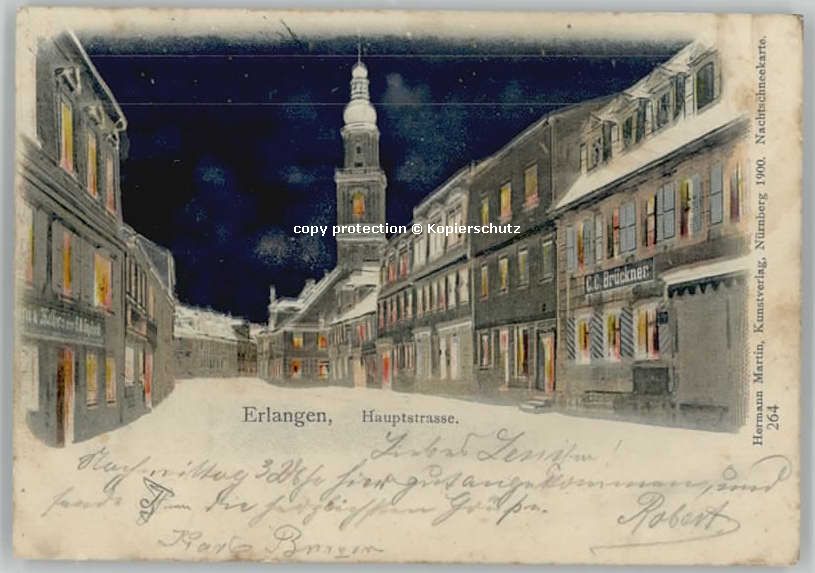 copy protection © Kopierschutz
C. C. Brückner.
Erlangen, Hauptstrasse.
Hermann Martin, Kunstverlag, Nürnberg 1900. Nachtschneekarte.
264
Liebes
Nachmittag 3 Uhr hier gut angekommen, und
sende die herzlichsten Grüße.
Robert
Karl